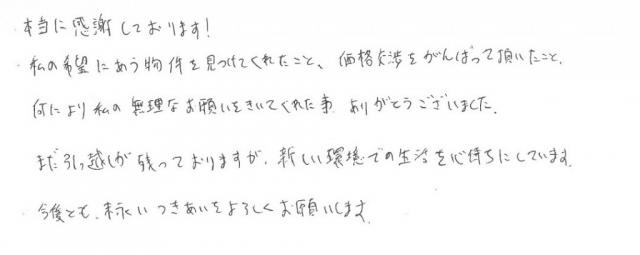 本当に感謝しております!
私の希望にあう物件を見つけてくれたこと、価格交渉をがんばって頂いたこと、
何により私の無理なお願いをきいてくれた事 ありがとうございました。
まだ引っ越しが残っておりますが、新しい環境での生活を心待ちにしています。
今後とも、末永いつきあいをよろしくお願いします。